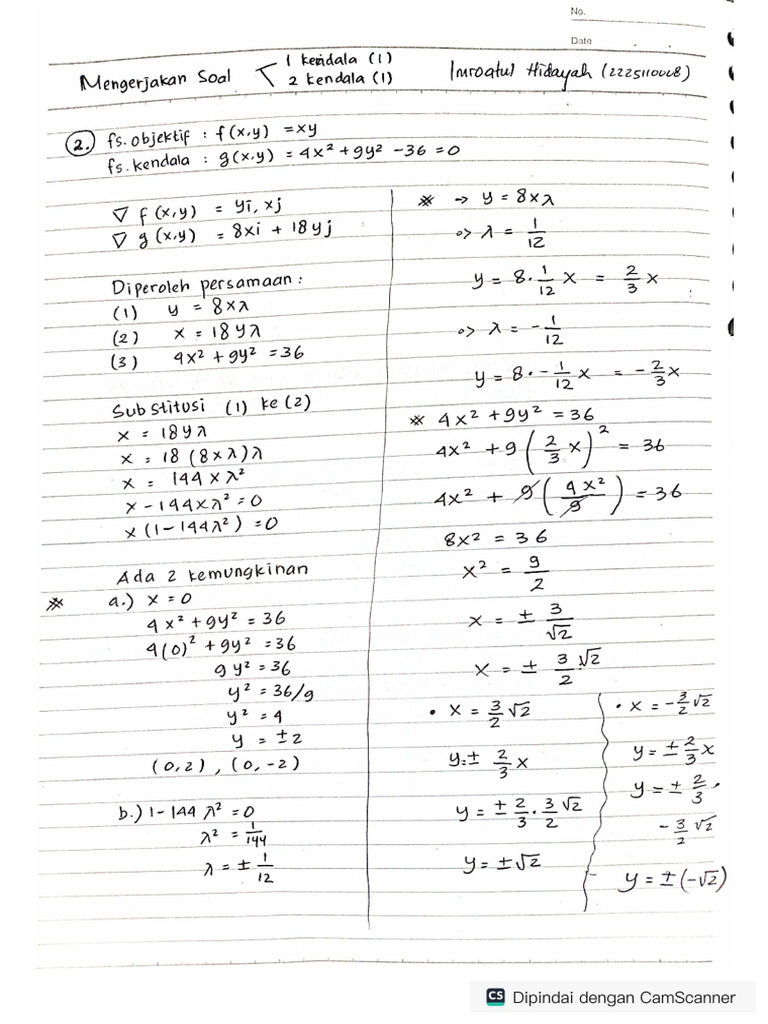 No.
Date
Mengerjakan Soal
1 kendala (1)
2 kendala (1)
Imroatul Hidayah (2225110008)
2. fs. objektif : f(x,y) = xy
fs. kendala : g(x,y) = 4x² + 9y² - 36 = 0
∇ f(x,y) = yi, xj
∇ g(x,y) = 8xi + 18yj
Diperoleh persamaan :
(1) y = 8xλ
(2) x = 18yλ
(3) 4x² + 9y² = 36
Substitusi (1) ke (2)
x = 18yλ
x = 18 (8xλ)λ
x = 144xλ²
x - 144xλ² = 0
x (1 - 144λ²) = 0
Ada 2 kemungkinan
* a.) x = 0
4x² + 9y² = 36
4(0)² + 9y² = 36
9y² = 36
y² = 36/9
y² = 4
y = ±2
(0,2), (0,-2)
b.) 1 - 144λ² = 0
λ² = 1/144
λ = ± 1/12
* → y = 8xλ
=> λ = 1/12
y = 8 . 1/12 x = 2/3 x
=> λ = - 1/12
y = 8 . - 1/12 x = - 2/3 x
* 4x² + 9y² = 36
4x² + 9 (2/3 x)² = 36
4x² + 9 (4x²/9) = 36
8x² = 36
x² = 9/2
x = ± 3/√2
x = ± 3/2 √2
• x = 3/2 √2
y = ± 2/3 x
y = ± 2/3 . 3/2 √2
y = ±√2
• x = - 3/2 √2
y = ± 2/3 x
y = ± 2/3 .
- 3/2 √2
y = ± (-√2)
CS Dipindai dengan CamScanner